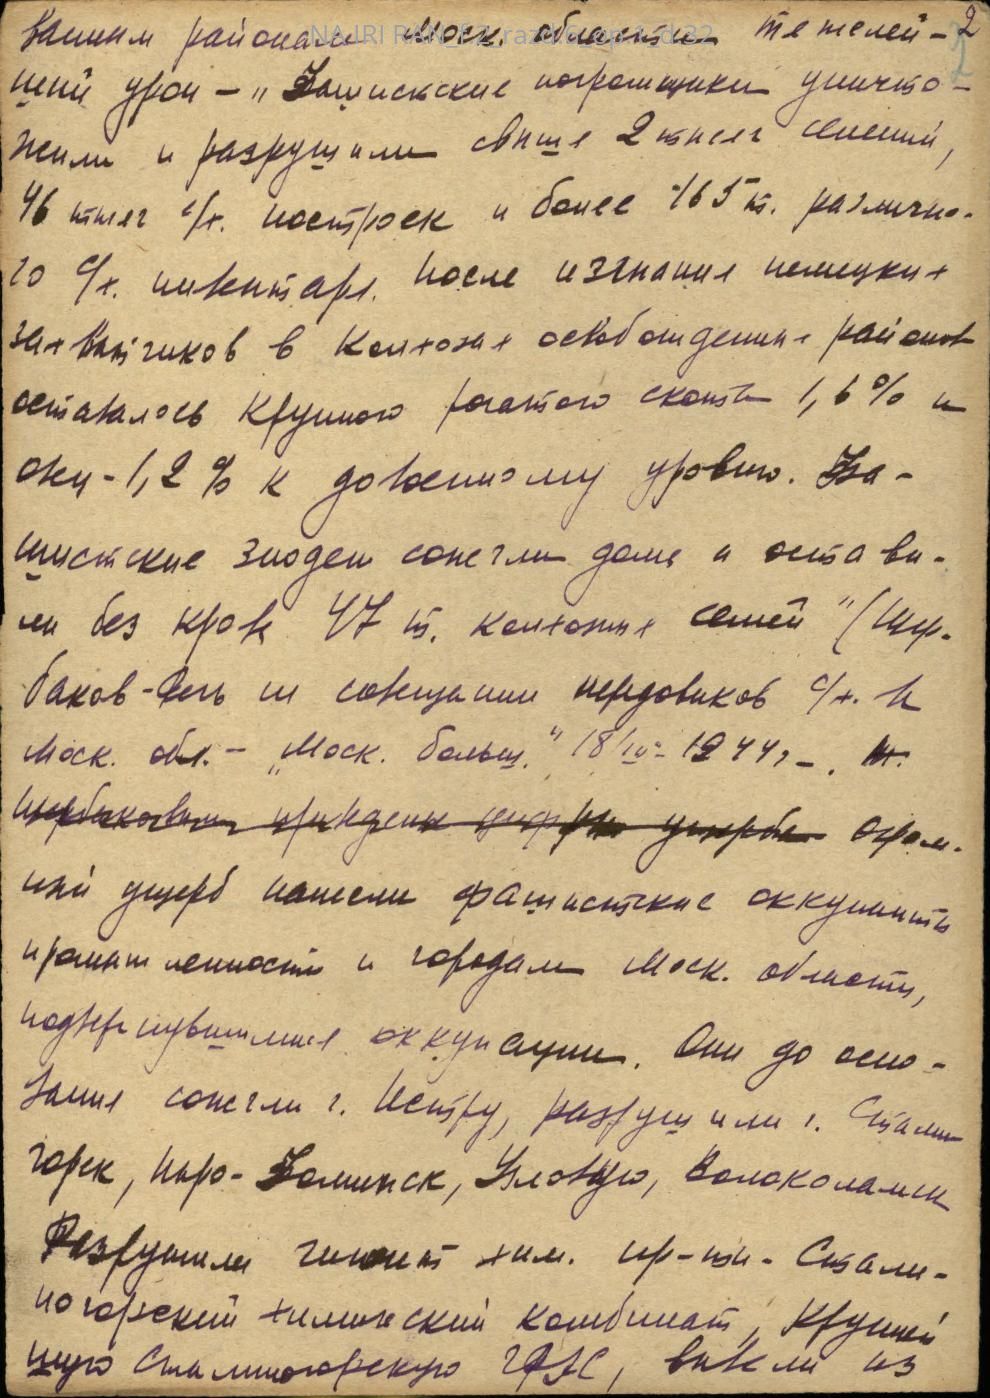 ванным районам Моск. области тяжелей- 2
ший урон – „Фашистские погромщики уничто-
жили и разрушили свыше 2 тысяч селений,
46 тысяч с/х. построек и более 165 т. различно-
го с/х. инвентаря. После изгнания немецких
захватчиков в колхозах освобожденных районов
оставалось крупного рогатого скота 1,6% и
овец - 1,2% к довоенному уровню. Фа-
шистские злодеи сожгли дома и остави-
ли без крова 47 т. колхозных семей" (Щер-
баков - Речь на совещании передовиков с/х. в
Моск. обл. – „Моск. больш." 18/IV- 1944г –. т.
Щербаковым приведены цифры ущерба Огром-
ный ущерб нанесли фашистские оккупанты
промышленности и городам Моск. области,
подвергнувшимся оккупации. Они до осно-
вания сожгли г. Истру, разрушили г. Сталин
горск, Наро-Фоминск, Узловую, Волоколамск
Разрушили гигант хим. пр-ти - Стали-
ногорский химический комбинат, крупней
шую Сталиногорскую ГРЭС, вывели из